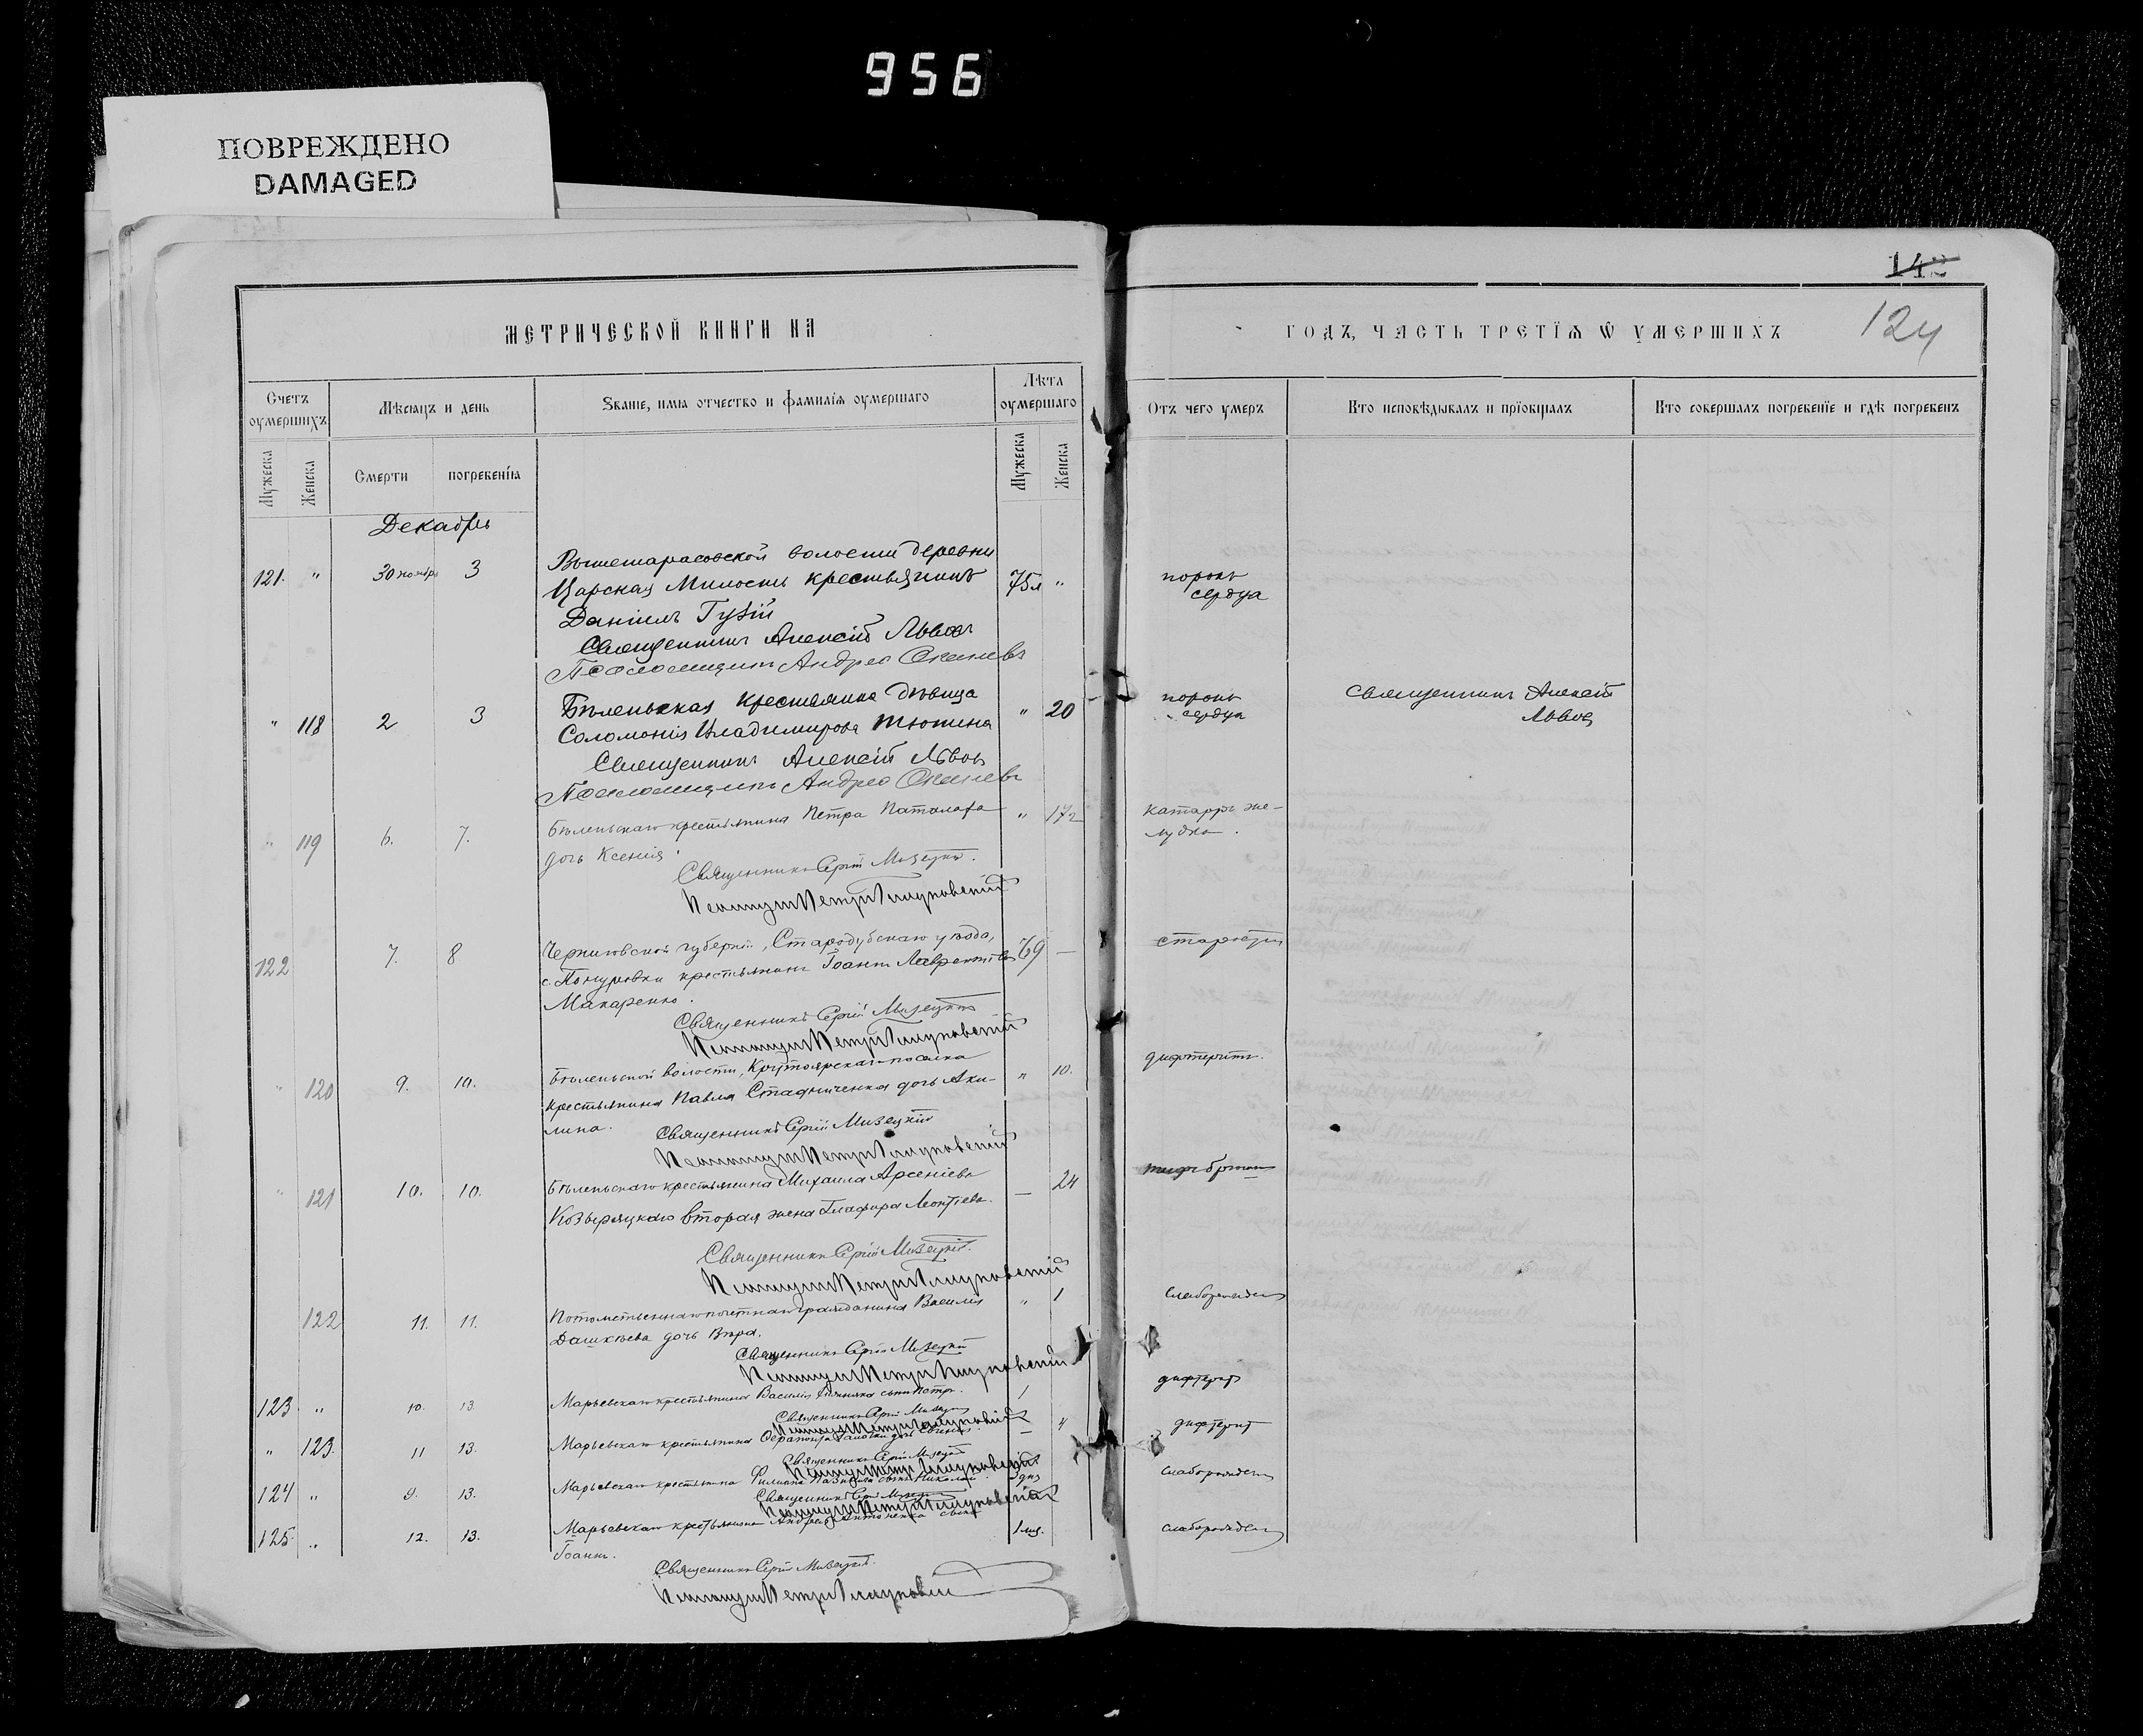 956
ПОВРЕЖДЕНО
DAMAGED
142
124
МЕТРИЧЕСКОЙ КНИГИ НА
ГОДЪ, ЧАСТЬ ТРЕТІѦ Ѿ УМЕРШИХЪ
Счетъ оумершихъ
Мѣсяцъ и день
Званіе, имя отчество и фамилія оумершаго
Лѣта оумершаго
Отъ чего умеръ
Кто исповѣдывалъ и пріобщалъ
Кто совершалъ погребеніе и гдѣ погребенъ
Мужеска
Женска
Смерти
погребенія
Мужеска
Женска
Декабрь
Вышетарасовской волости деревни
121. " 30 ноябр 3 Царская Милость крестьянинъ 75 л "
Даніилъ Гузій
порокъ
сердца
Священникъ Алексій Львовъ
Псаломщикъ Андрей
Бѣленькая крестьянка дѣвица
" 118 2 3 Соломонія Владимирова Тютина " 20
порокъ
сердца
Священникъ Алексій
Львов
Священникъ Алексій Львовъ
Псаломщикъ Андрей
Бѣленькаго крестьянина Петра
" 119 6. 7. дочь Ксенія " 17
катарръ же-
лудка.
Священникъ Сергій Мизецкій.
Псаломщикъ Петръ
Черниговской губерніи, Стародубскаго уѣзда,
122 7. 8 с. Понуровки крестьянинъ Іоаннъ Лаврентіевъ 69 —
Макаренко.
старости
Священникъ Сергій Мизецкій
Псаломщикъ Петръ
Бѣленькой волости, Крутоярскаго поселка
" 120 9. 10. крестьянина Павла Стадниченка дочь Аки- " 10.
лина.
дифтеритъ.
Священникъ Сергій Мизецкій
Псаломщикъ Петръ
Бѣленькаго крестьянина Михаила Арсеніева
" 121 10. 10. Козыряцкаго вторая жена Глафира Леонтіева. — 24
тифъ брюшн
Священникъ Сергій Мизецкій.
Псаломщикъ Петръ
Потомственнаго почетнаго гражданина Василія " 1
122 11. 11. Дашкѣева дочь Вѣра.
слаборожден
Священникъ Сергій Мизецкій
Псаломщикъ Петръ
123 " 10. 13. Марьевскаго крестьянина Василія сынъ Петръ. 1
дифтерит
Священникъ Сергій Мизецкій
Псаломщикъ Петръ
" 123. 11 13. Марьевскаго крестьянина дочь — 4
дифтерит
Священникъ Сергій Мизецкій
Псаломщикъ Петръ
124 " 9. 13. Марьевскаго крестьянина Филиппа сынъ Николай
слаборожден
Священникъ Сергій Мизецкій
Псаломщикъ Петръ
125. " 12. 13. Марьевскаго крестьянина Андрея Антоненка сынъ 1 мц.
Іоаннъ.
слаборожден
Священникъ Сергій Мизецкій.
Псаломщикъ Петръ